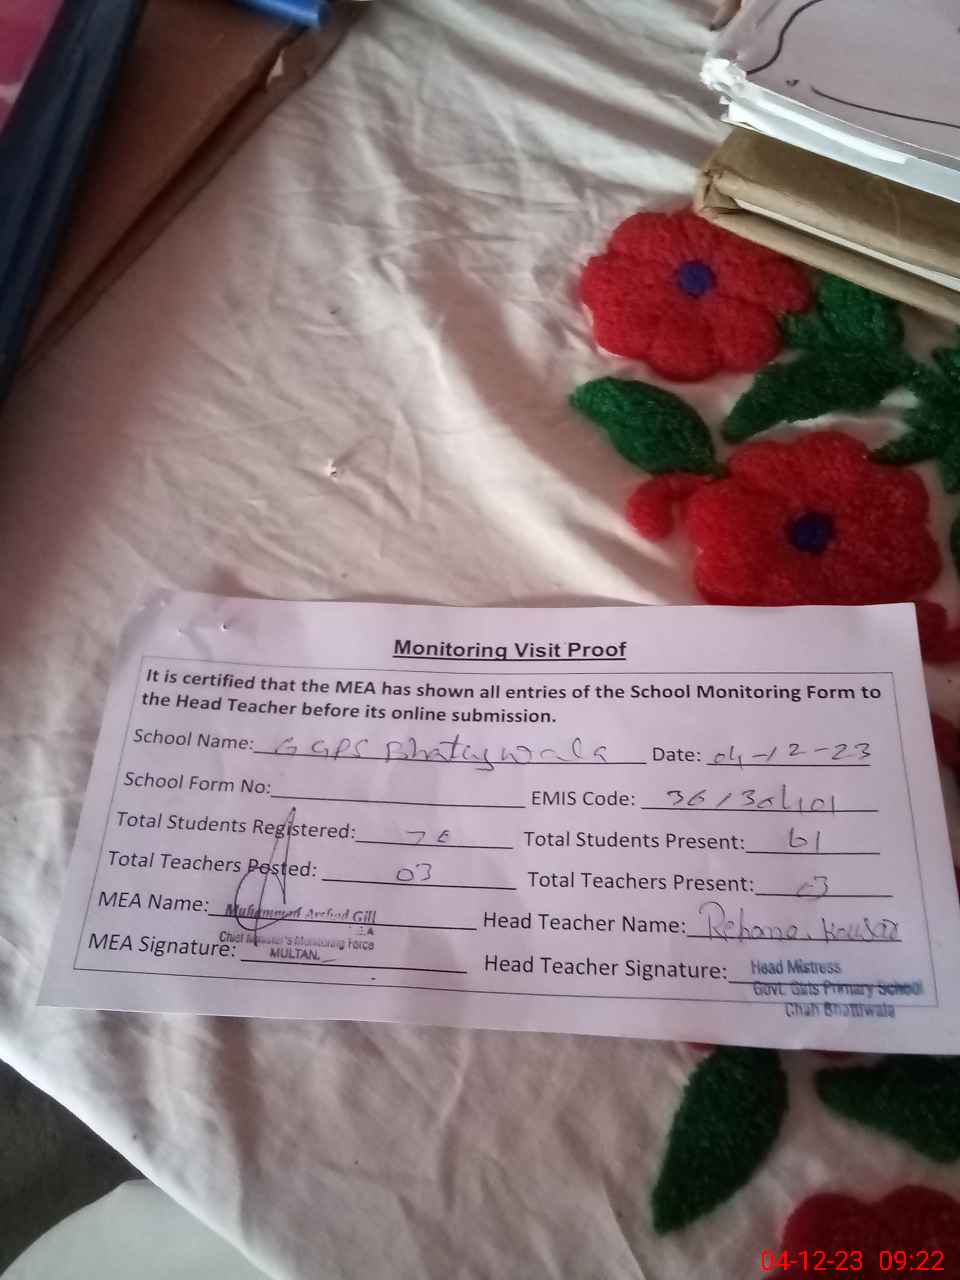 Monitoring Visit Proof
It is certified that the MEA has shown all entries of the School Monitoring Form to
the Head Teacher before its online submission.
School Name: GGPS Date: 04-12-23
School Form No: EMIS Code:
Total Students Registered: Total Students Present: 61
Total Teachers Posted: 03 Total Teachers Present: 03
MEA Name: Muhammad Arshad Gill Head Teacher Name: Rehana Kousar
Chief Minister's Monitoring Force
MEA Signature: MULTAN. Head Teacher Signature: Head Mistress
Govt. Girls Primary School
Chah Bhattiwala
04-12-23 09:22